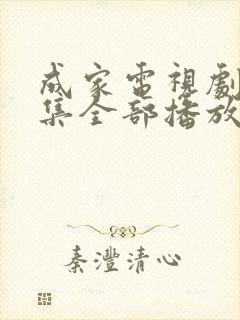 成家電視劇
集全部播放
秦灃清心